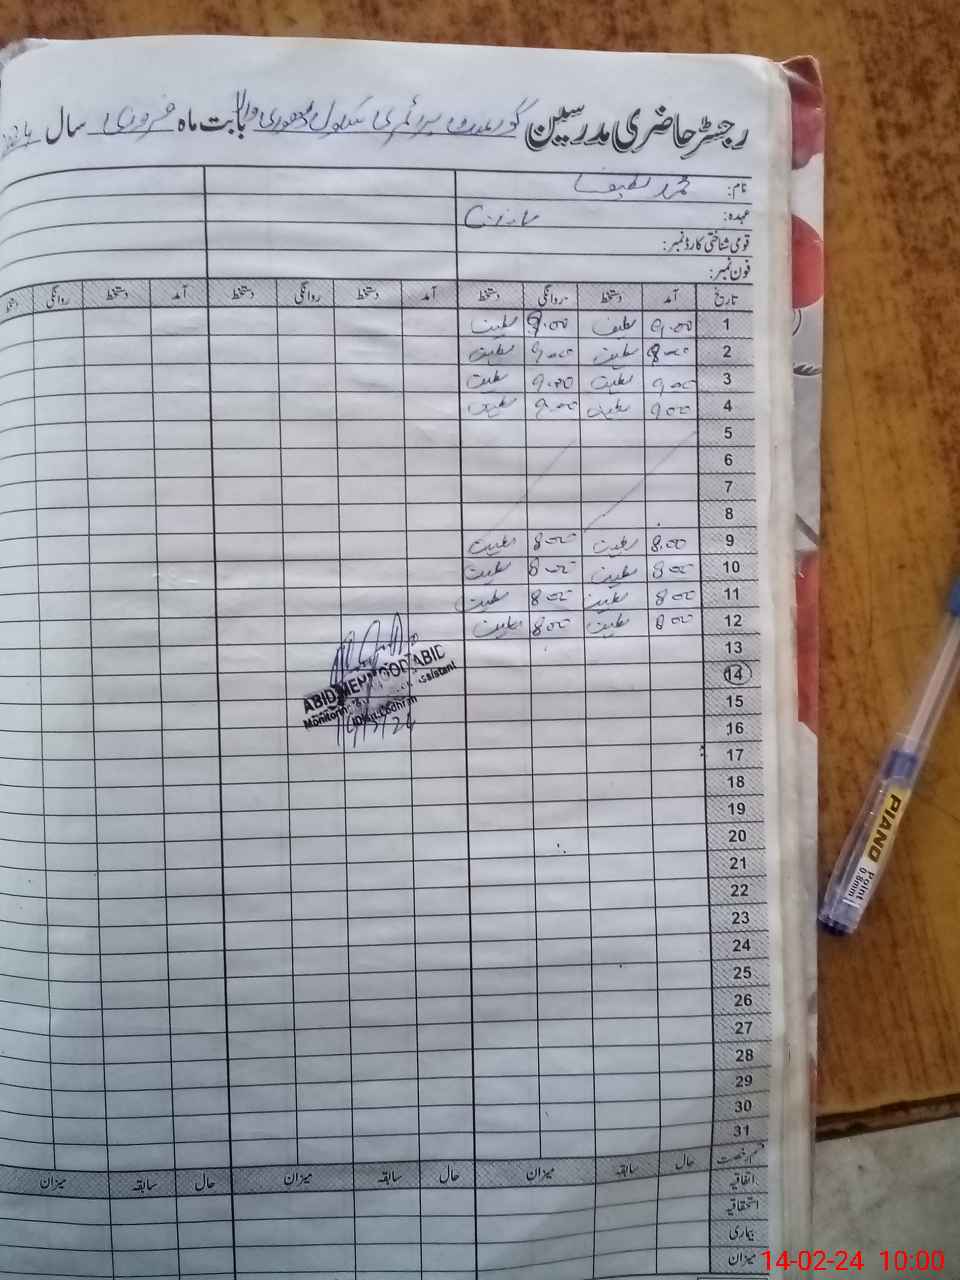 رجسٹر حاضری مدرسین گورنمنٹ پرائمری سکول والا بابت ماہ فروری سال
نام: محمد لطیف
عہدہ:
قومی شناختی کارڈ نمبر:
فون نمبر:
تاریخ آمد دستخط روانگی دستخط آمد دستخط روانگی دستخط آمد دستخط روانگی دستخط
1 9.00 لطیف 9.00 لطیف
2 8.00 لطیف 9.00 لطیف
3 9.00 لطیف 9.00 لطیف
4 9.00 لطیف 9.00 لطیف
5
6
7
8
9 8.00 لطیف 8.00 لطیف
10 8.00 لطیف 8.00 لطیف
11 8.00 لطیف 8.00 لطیف
12 8.00 لطیف 8.00 لطیف
13
ABID MEHMOOD ABID
14
Monitoring Assistant
15
Lodhran
14/2/24
16
17
18
19
20
21
22
23
24
25
26
27
28
29
30
31
قسم رخصت حال سابقہ میزان حال سابقہ میزان حال سابقہ میزان
اتفاقیہ
استحقاقیہ
بیماری
میزان
PIANO
Point
0.8mm
14-02-24 10:00